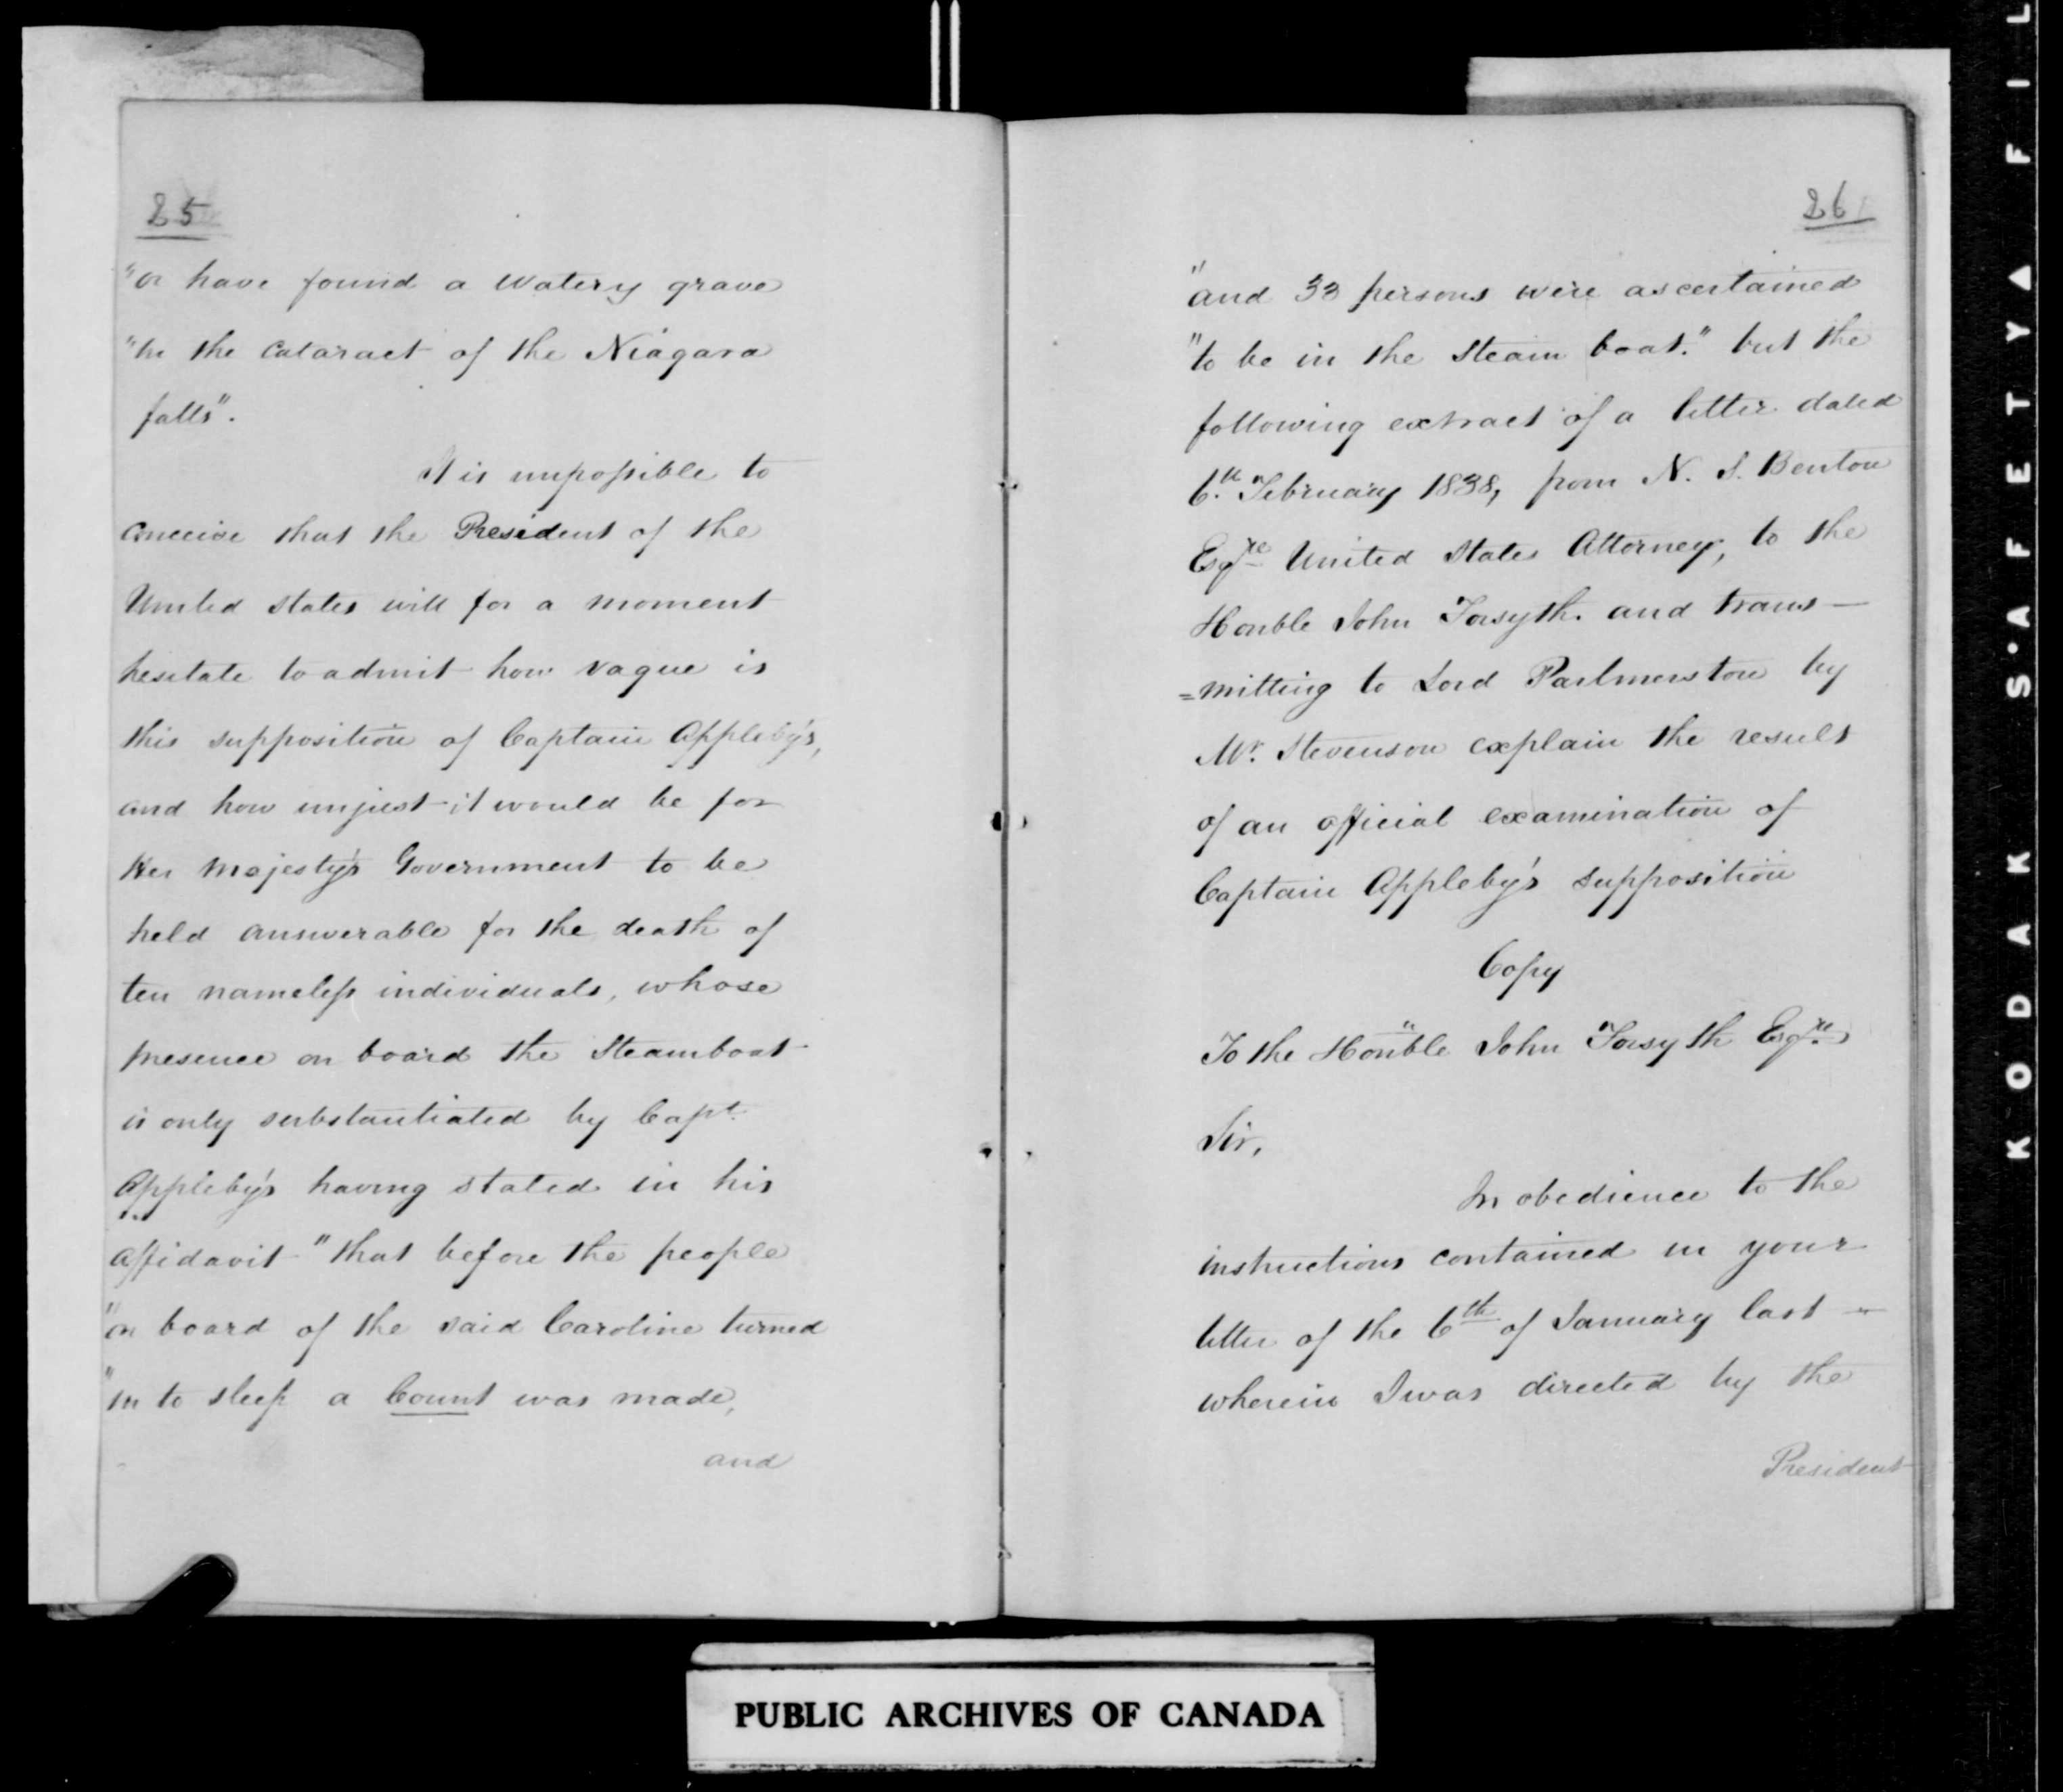 25
"or have found a watery grave
"in the Cataract of the Niagara
falls".
It is impossible to
conceive that the President of the
United States will for a moment
hesitate to admit how vague is
this supposition of Captain Appleby's,
and how unjust it would be for
Her Majesty's Government to be
held answerable for the death of
ten nameless individuals, whose
presence on board the Steamboat
is only substantiated by Capt.
Appleby's having stated in his
affidavit "that before the people
"on board of the said Caroline turned
"in to sleep a Count was made,
and
26
"and 33 persons were ascertained
"to be in the Steam boat." but the
following extract of a letter dated
6.th February 1838, from N. S. Benton
Esqre United States Attorney, to the
Honble John Forsyth. and trans-
=mitting to Lord Parlmerston by
Mr. Stevenson explain the result
of an official examination of
Captain Appleby's supposition
Copy
To the Hon"ble John Forsyth Esqre
Sir,
In obedience to the
instructions contained in your
letter of the 6th of January last -
wherein I was directed by the
President
PUBLIC ARCHIVES OF CANADA
KODAK S'AFETY▲FIL